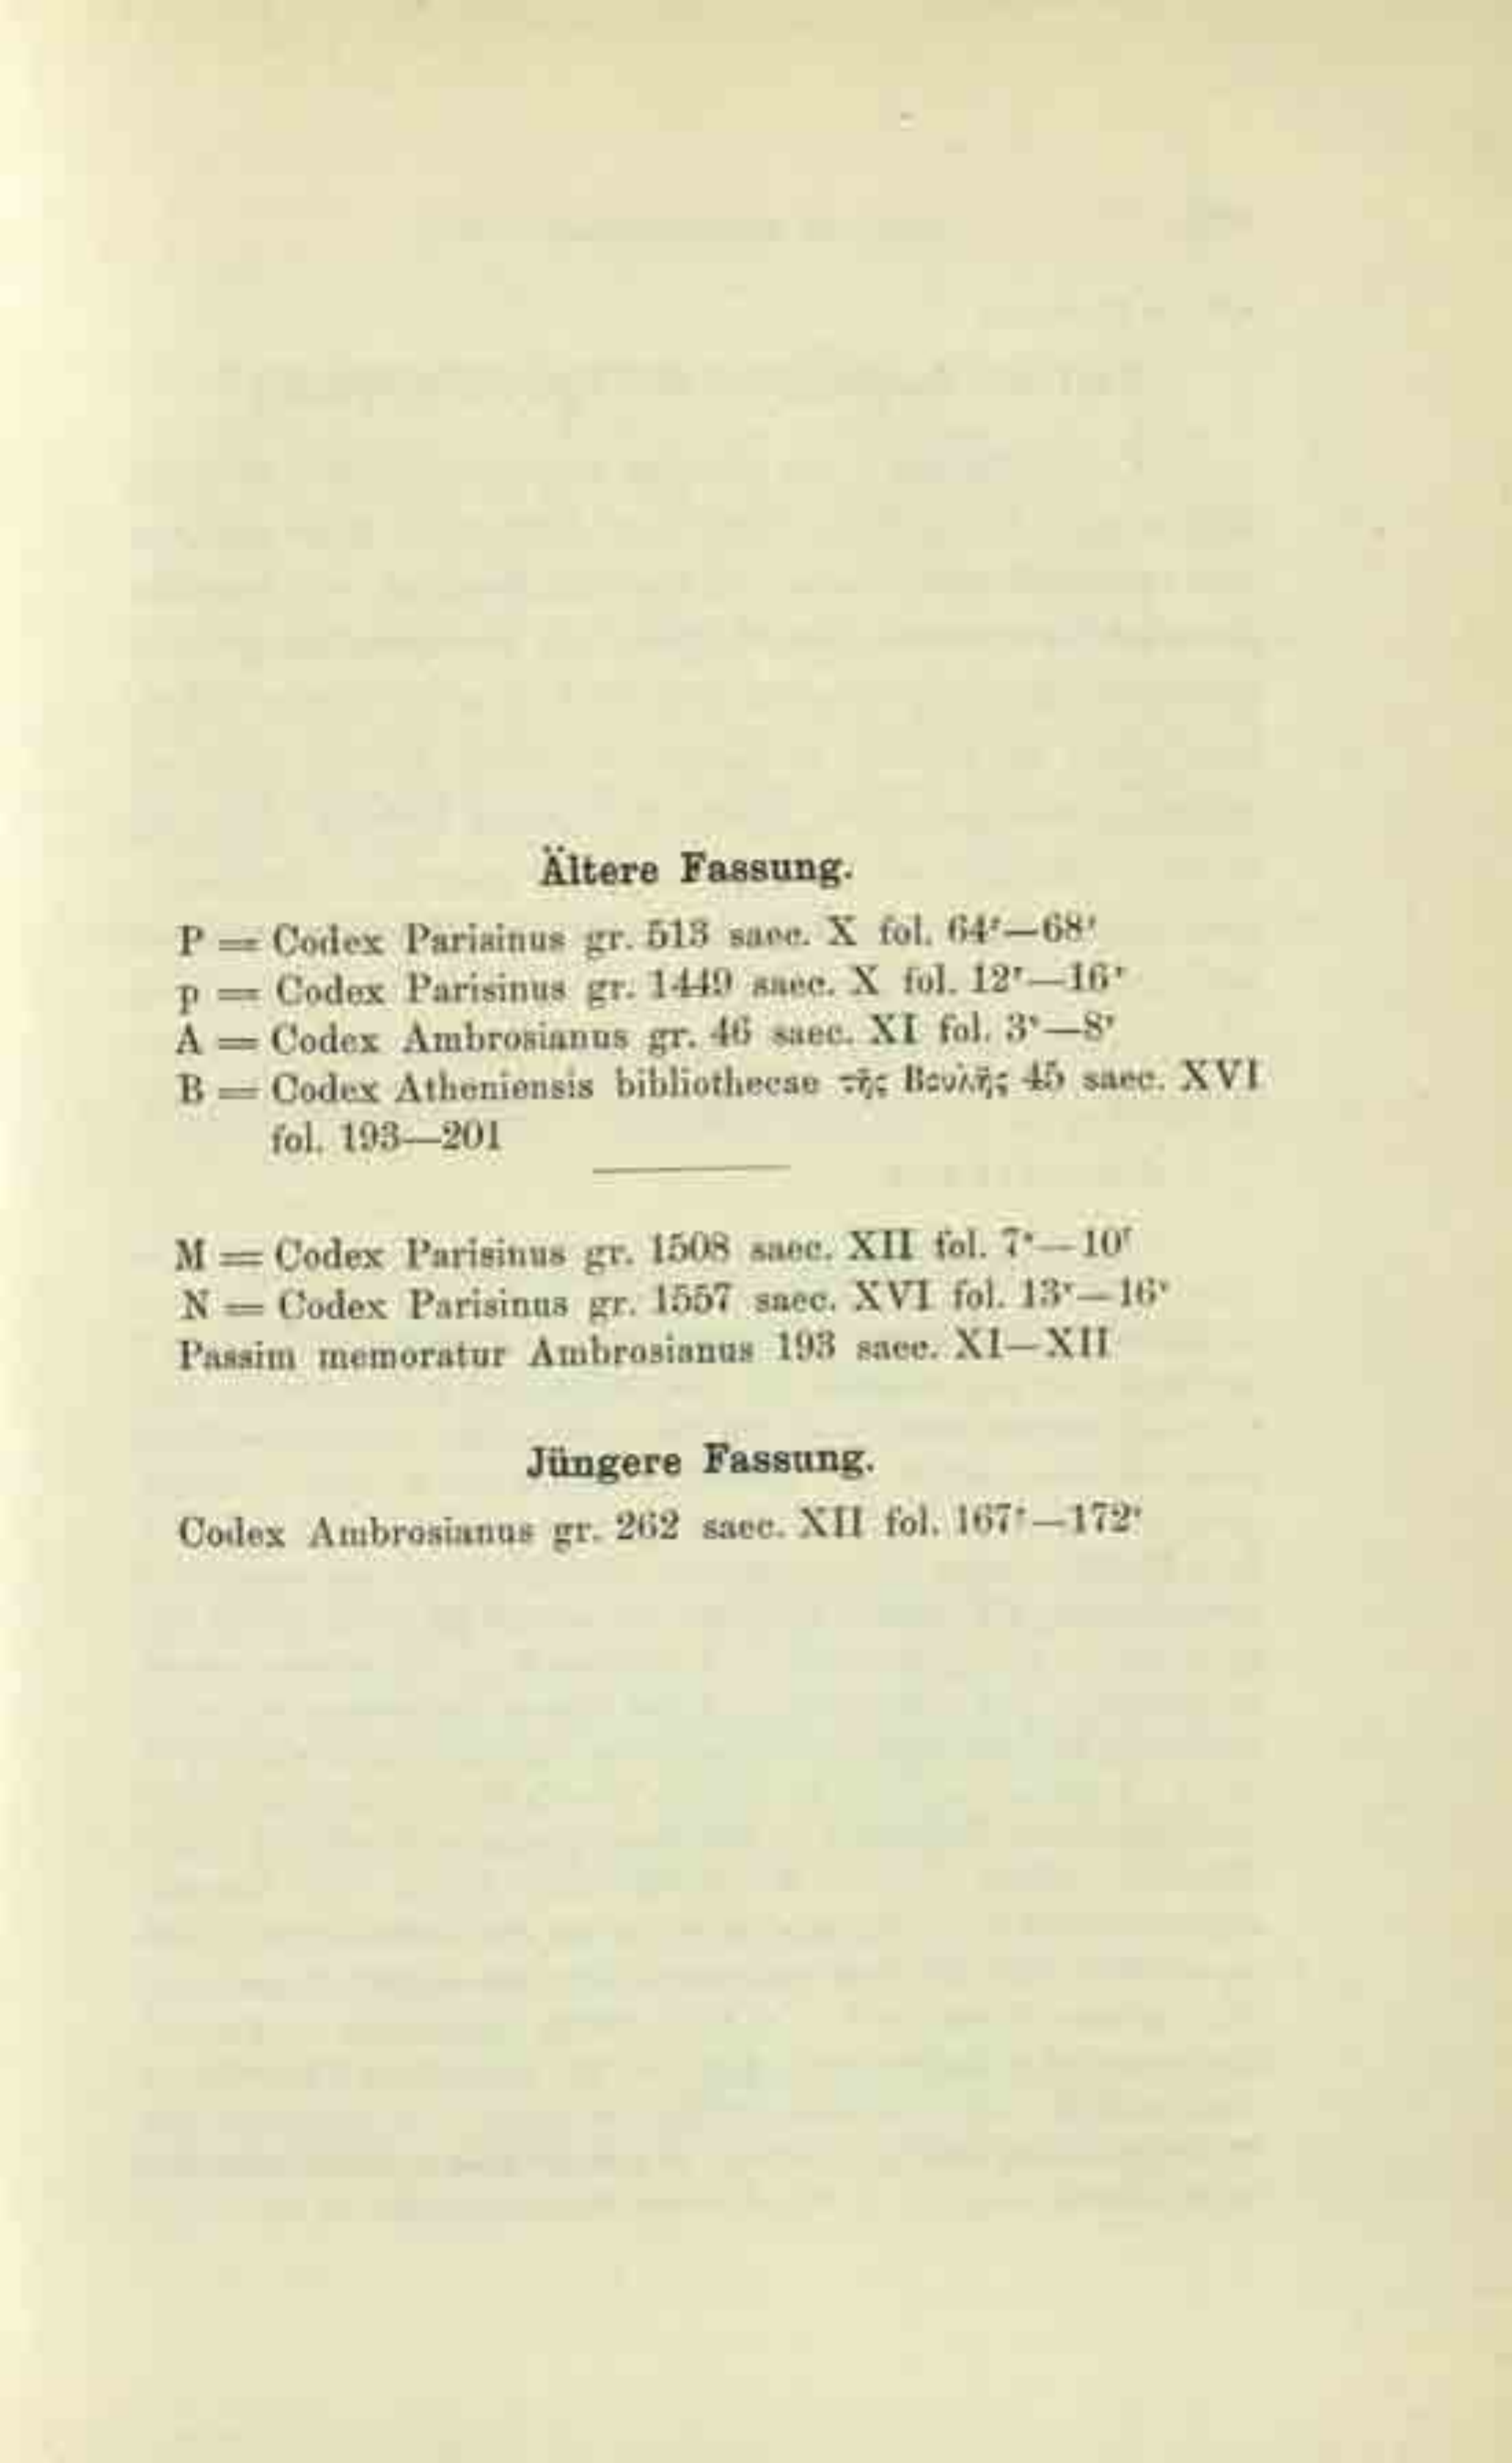 Ältere Fassung.
P = Codex Parisinus gr. 513 saec. X fol. 64ʳ—68ʳ
p = Codex Parisinus gr. 1449 saec. X fol. 12ʳ—16ʳ
A = Codex Ambrosianus gr. 46 saec. XI fol. 3ᵛ—8ᵛ
B = Codex Atheniensis bibliothecae τῆς Βουλῆς 45 saec. XVI
fol. 193—201
M = Codex Parisinus gr. 1508 saec. XII fol. 7ᵛ—10ʳ
N = Codex Parisinus gr. 1557 saec. XVI fol. 13ʳ—16ᵛ
Passim memoratur Ambrosianus 193 saec. XI—XII
Jüngere Fassung.
Codex Ambrosianus gr. 262 saec. XII fol. 167ʳ—172ᵛ